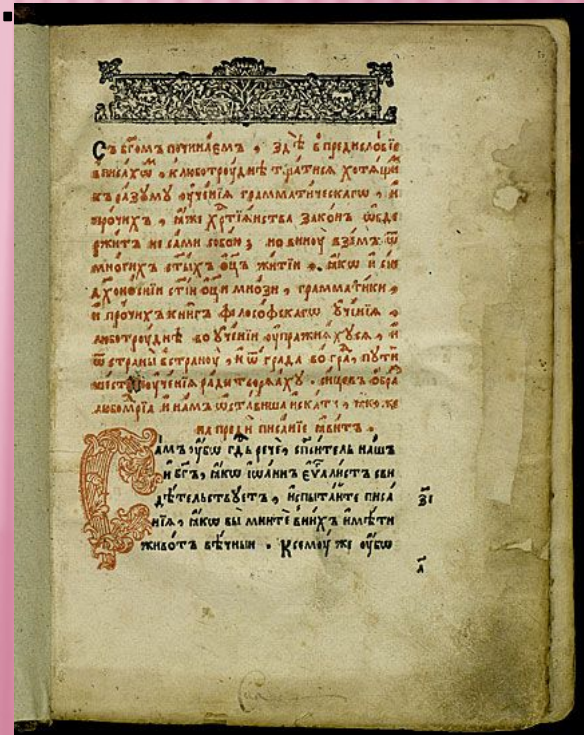 Съ бг҃омъ починаемъ , здѣ в предисловїе
вписахѡⷨ , к люботрꙋднѣ тщатися хотящиⷨ
къ разуму оу҆ченїя грамматическагѡ , и
прочихъ , ꙗ҆же хр҃тїянства законъ ѡ҆бде
ржитъ не сами собою ; но винꙋ вземъ ѿ
многихъ ст҃ыхъ ѻ҆ц҃ъ житїи , ꙗ҆кѡ и
дх҃оноснїи ст҃їи ѻ҆ц҃и мнозѝ , грамматики ,
и прочихъ книгъ философскагѡ ᲂу҆ченїя ,
люботрꙋднѣ во ᲂу҆ченїи ᲂу҆пражняхꙋся , и
ѿ страны встранꙋ , и ѿ града во граⷣ , пꙋти
шест ᲂу҆ченїя ради творяахꙋ . сицевъ ѻ҆браⷥ
любомⷣрїа и намъ ѡ҆ставиша искати , ꙗ҆коже
на преди писанїе ꙗ҆витъ .
Самъ ᲂу҆бѡ гдⷭ҇ь речѐ , сп҃ситель нашъ
и бг҃ъ , ꙗ҆кѡ і҆ѡа́ннъ єѵⷢ҇алистъ сви
дѣтельствуетъ , и҆спытайте писа
нїя , ꙗ҆кѡ вы мните в нихъ и҆мѣти
животъ вѣчныи . К семꙋ же ᲂу҆бѡ
зі
а